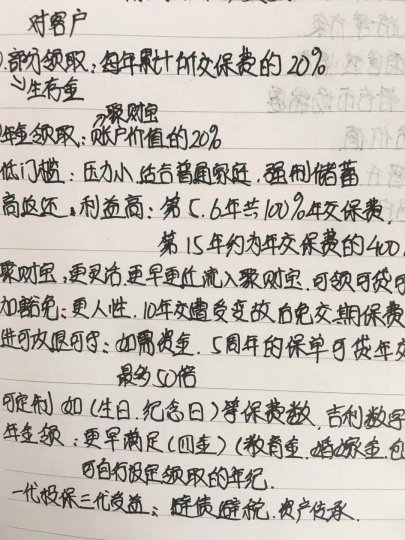 对客户
部分领取：每年累计所交保费的20%
生存金
聚财宝
年金领取：账户价值的20%
低门槛：压力小，适合普通家庭，强制储蓄
高返还、利益高：第5.6年共100%年交保费，
第15年约为年交保费的400
聚财宝，更灵活，更早更快流入聚财宝，可领可贷可
加豁免：更人性，10年交遭受变故后免交 期保费
进可攻退可守：如需资金，5周年的保单可贷年交
最多50倍
可定制 如（生日、纪念日）等保费数，吉利数字
年金领：更早满足（四金）（教育金、婚嫁金、创
可自行设定领取的年纪.
一代投保三代受益：避债避税、资产传承.